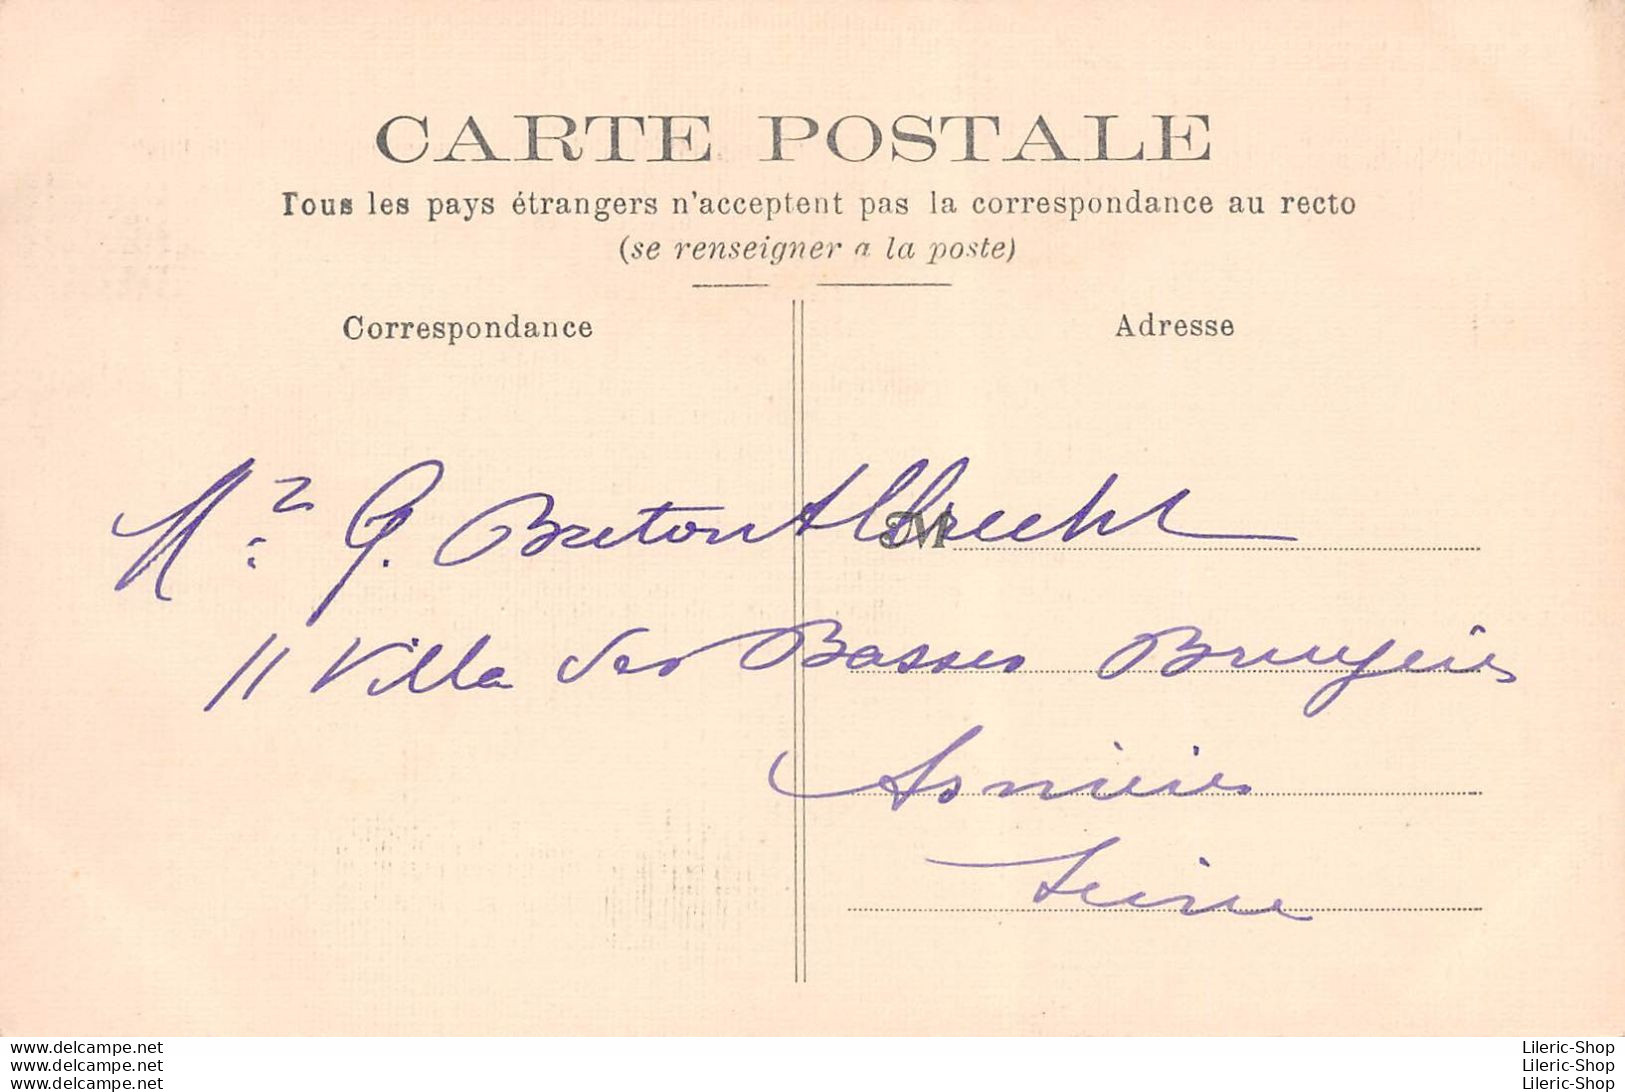 CARTE POSTALE
Tous les pays étrangers n'acceptent pas la correspondance au recto
(se renseigner a la poste)
Correspondance
Adresse
Mr G. Breton Albrecht
M
11 Villa des Basses Bruyères
Asnières
Seine
www.delcampe.net
www.delcampe.net
www.delcampe.net
Lileric-Shop
Lileric-Shop
Lileric-Shop